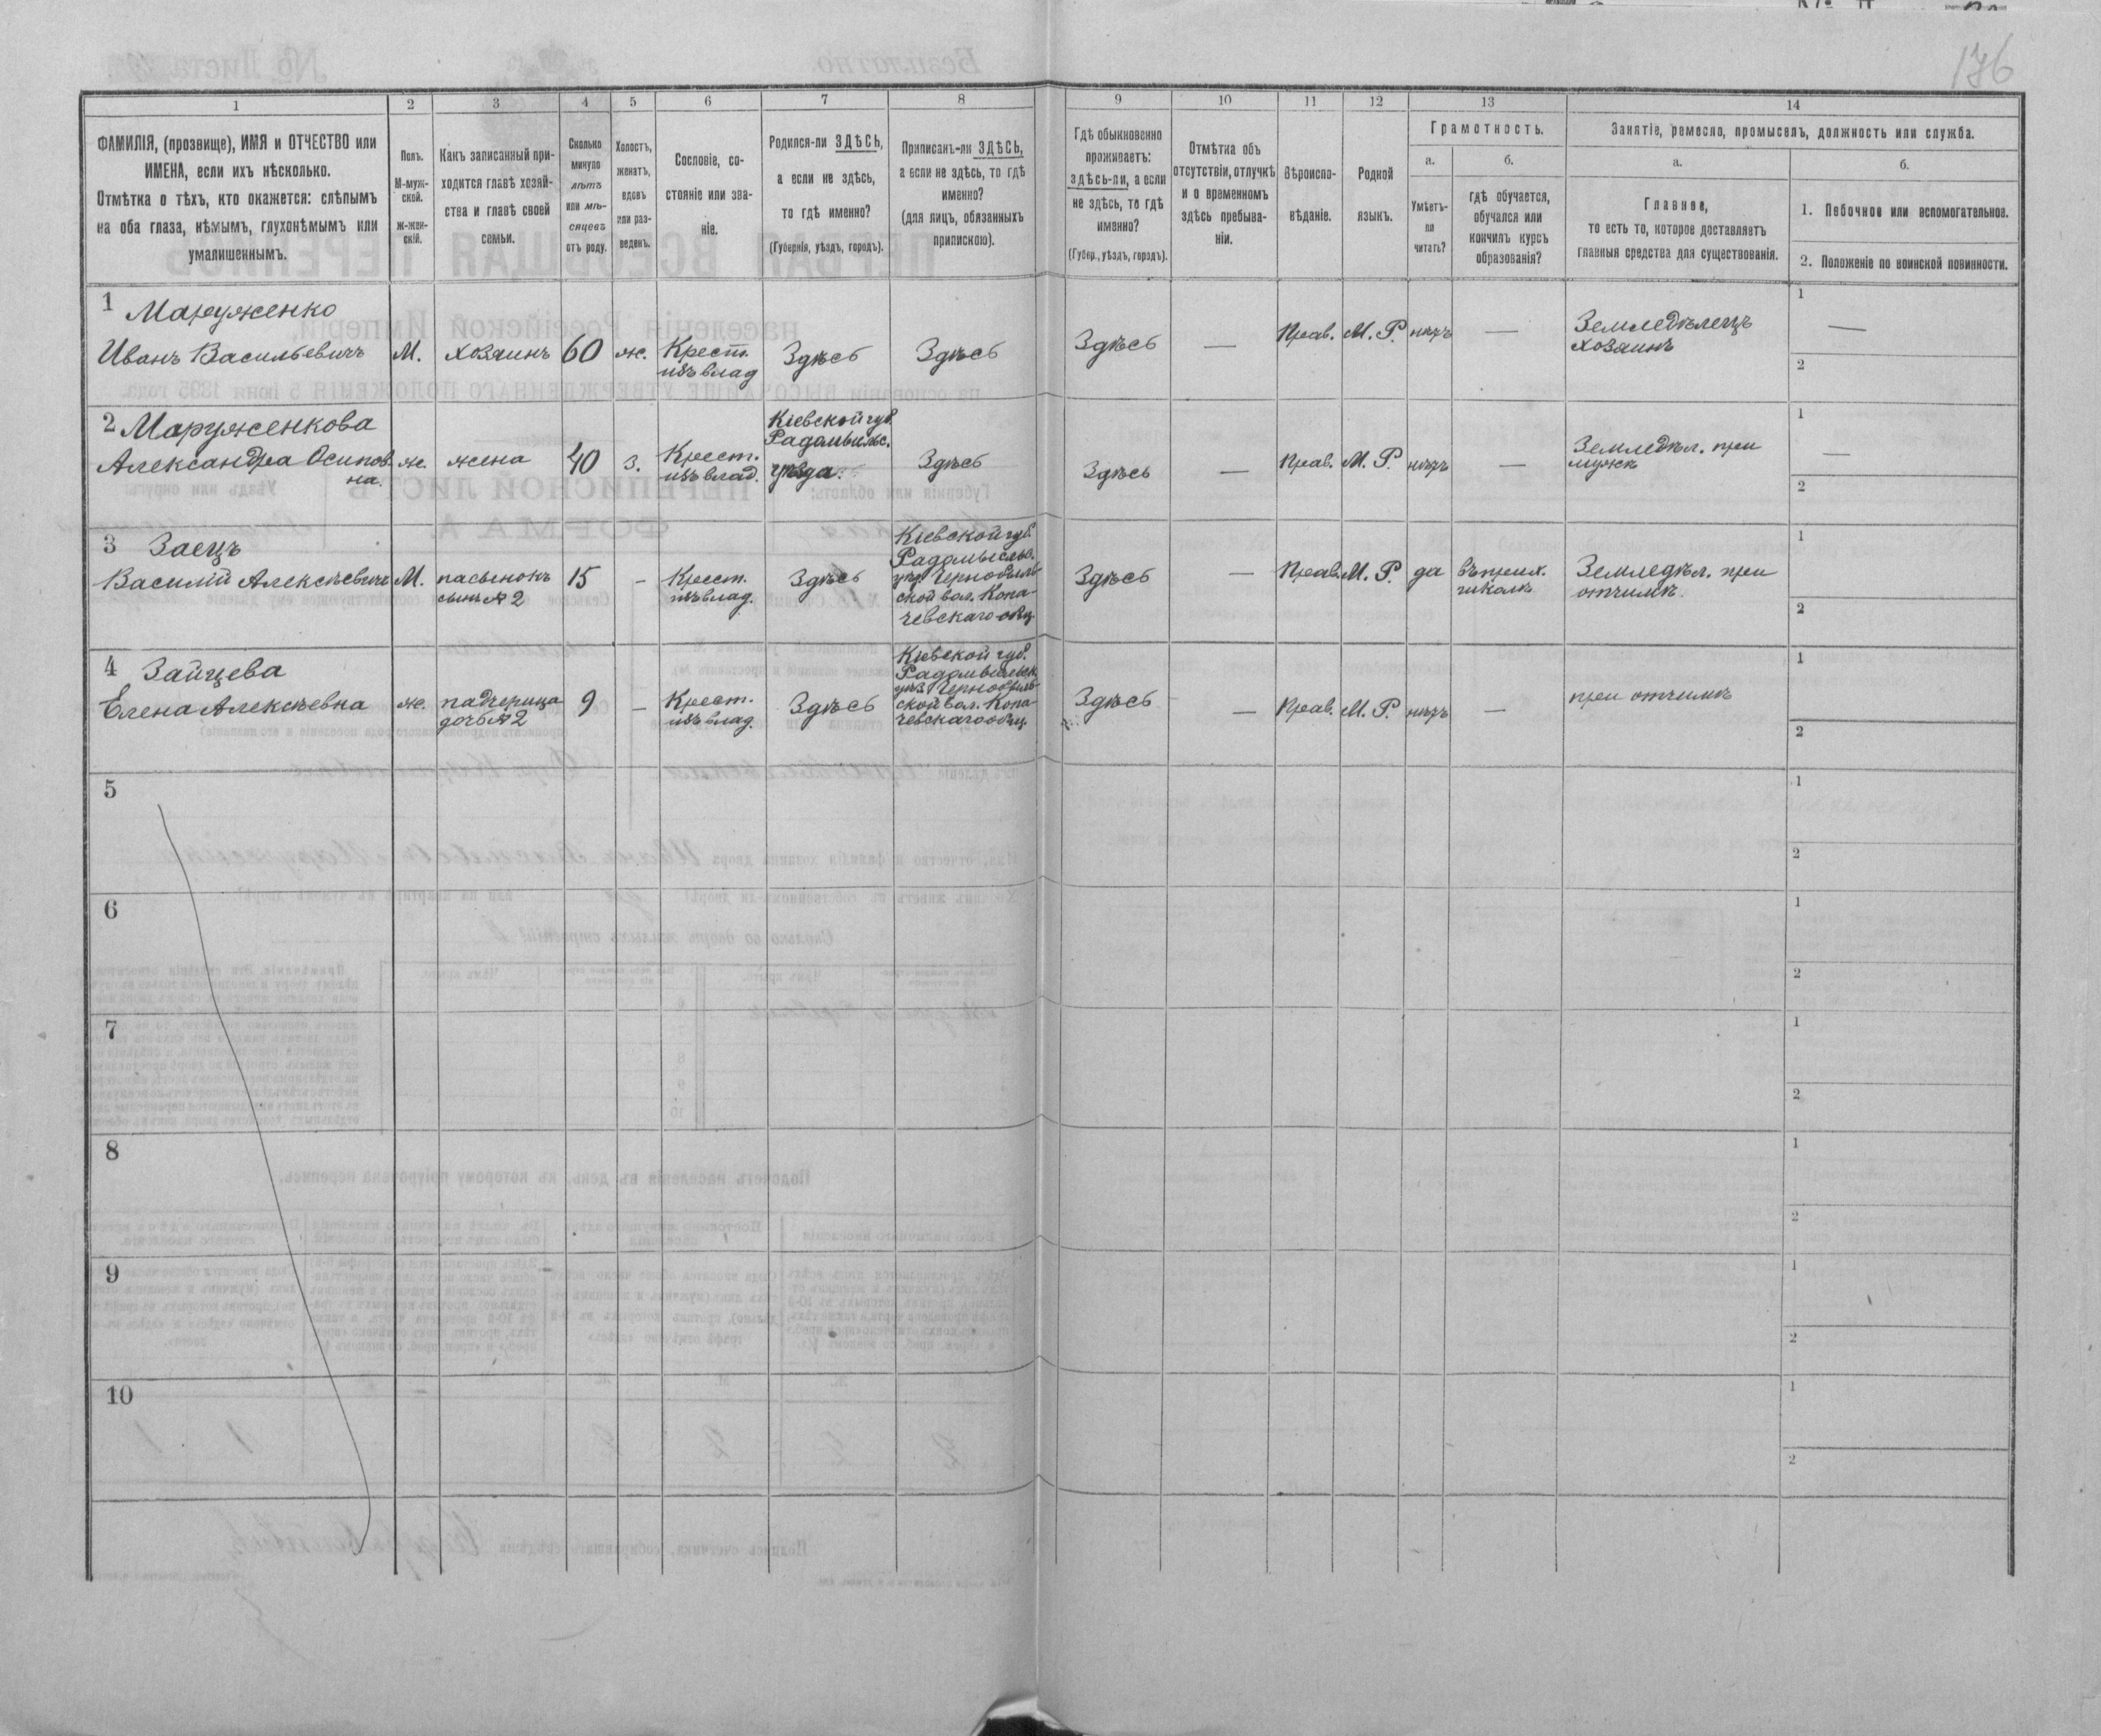 176
1
2
3
4
5
6
7
8
9
10
11
12
13
14
ФАМИЛІЯ, (прозвище), ИМЯ и ОТЧЕСТВО или
ИМЕНА, если ихъ нѣсколько.
Отмѣтка о тѣхъ, кто окажется: слѣпымъ
на оба глаза, нѣмымъ, глухонѣмымъ или
умалишеннымъ.
Полъ.
М-муж-
ской.
Ж-жен-
скій.
Какъ записанный при-
ходится главѣ хозяй-
ства и главѣ своей
семьи.
Сколько
минуло
лѣтъ
или мѣ-
сяцевъ
отъ роду.
Холостъ,
женатъ,
вдовъ
или раз-
веденъ.
Сословіе, со-
стояніе или зва-
ніе.
Родился-ли ЗДѢСЬ,
а если не здѣсь,
то гдѣ именно?
(Губернія, уѣздъ, городъ).
Приписанъ-ли ЗДѢСЬ,
а если не здѣсь, то гдѣ
именно?
(для лицъ, обязанныхъ
припискою).
Гдѣ обыкновенно
проживаетъ:
здѣсь-ли, а если
не здѣсь, то гдѣ
именно?
(Губер., уѣздъ, городъ).
Отмѣтка объ
отсутствіи, отлучкѣ
и о временномъ
здѣсь пребыва-
ніи.
Вѣроиспо-
вѣданіе.
Родной
языкъ.
Грамотность.
а.
Умѣетъ-
ли
читать?
б.
гдѣ обучается,
обучался или
кончилъ курсъ
образованія?
Занятіе, ремесло, промыселъ, должность или служба.
а.
Главное,
то есть то, которое доставляетъ
главныя средства для существованія.
б.
1. Побочное или вспомогательное.
2. Положеніе по воинской повинности.
1 Маруженко
Иванъ Васильевичъ
М.
хозяинъ
60
ж.
Крест.
изъ влад
Здѣсь
Здѣсь
Здѣсь
—
Прав.
М. Р.
нѣтъ
—
Земледѣлецъ
хозяинъ
1
—
2
2 Маруженкова
Александра Осипов
на.
ж.
жена
40
з.
Крест.
изъ влад.
Кіевской губ.
Радомысльс.
уѣзда.
Здѣсь
Здѣсь
—
Прав.
М. Р.
нѣтъ
—
Земледѣл. при
мужѣ
1
—
2
3 Заецъ
Василій Алексѣевичъ
М.
пасынокъ
сынъ № 2
15
-
Крест.
изъ влад.
Здѣсь
Кіевской губ.
Радомысльс.
уѣз. Чернобыль-
ской вол. Копа-
чевскаго общ.
Здѣсь
—
Прав.
М. Р.
да
въ прих.
школѣ
Земледѣл. при
отчимѣ.
1
2
4 Зайцева
Елена Алексѣевна
ж.
падчерица
дочь № 2
9
-
Крест.
изъ влад.
Здѣсь
Кіевской губ.
Радомысльск.
уѣз. Чернобыль-
ской вол. Копа-
чевскаго общ.
Здѣсь
—
Прав.
М. Р.
нѣтъ
—
при отчимѣ
1
2
5
1
2
6
1
2
7
1
2
8
1
2
9
1
2
10
1
2